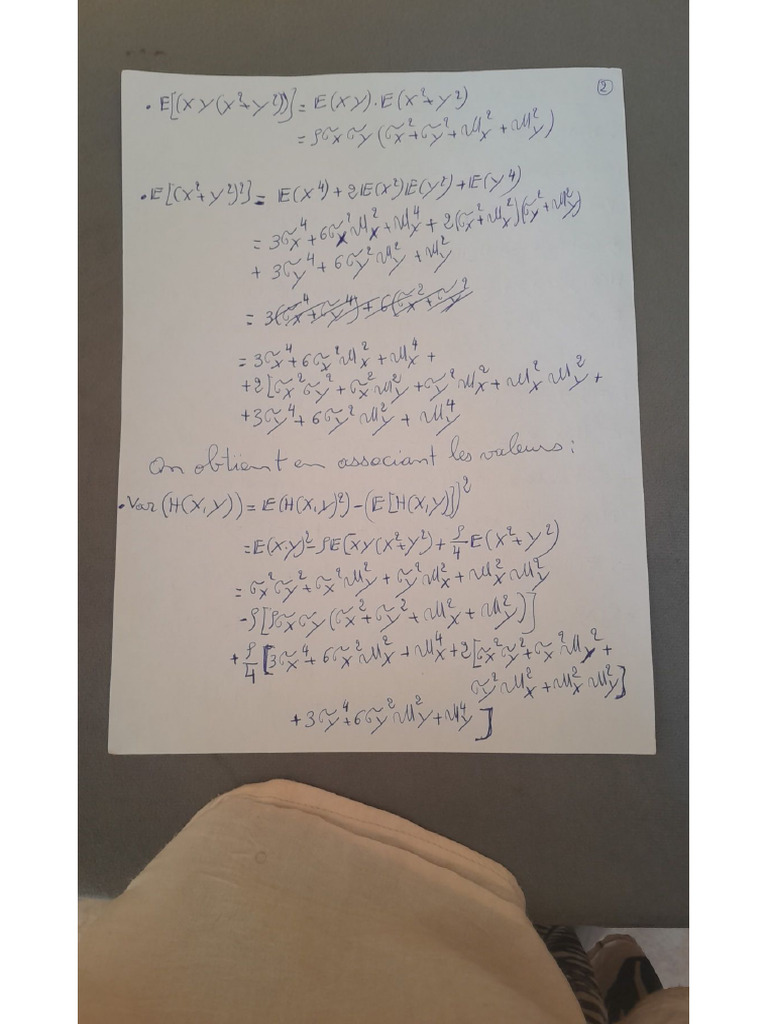 ②
. E[(XY(X²+Y²))] = E(XY).E(X²+Y²)
= ρσxσy(σx²+σy²+μx²+μy²)
. E[(X²+Y²)²] = E(X⁴)+2E(X²)E(Y²)+E(Y⁴)
= 3σx⁴+6σx²μx²+μx⁴+2(σx²+μx²)(σy²+μy²)
+ 3σy⁴+6σy²μy²+μy²
= 3(σx⁴+σy⁴)+6(σx²+σy²
= 3σx⁴+6σx²μx²+μx⁴+
+2[σx²σy²+σx²μy²+σy²μx²+μx²μy²+
+3σy⁴+6σy²μy²+μy⁴
On obtient en associant les valeurs :
. Var(H(X,Y)) = E(H(X,Y)²)-(E[H(X,Y)])²
= E(X.Y)²-ρE(XY(X²+Y²)+ρ/4 E(X²+Y²)
= σx²σy²+σx²μy²+σy²μx²+μx²μy²
-ρ[ρσxσy(σx²+σy²+μx²+μy²)]
+ρ/4[3σx⁴+6σx²μx²+μx⁴+2[σx²σy²+σx²μy²+
σy²μx²+μx²μy²]
+3σy⁴+6σy²μ²y+μy⁴]